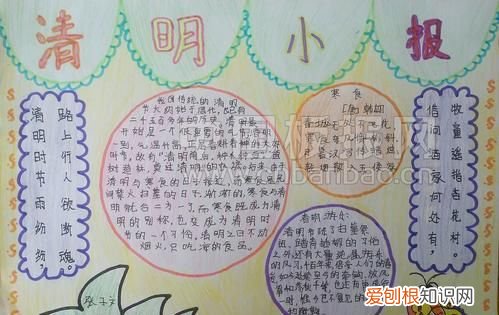 清明小报
路上行人欲断魂。
清明时节雨纷纷，
我国传统的清明
节大约始于周代，已有
二千五百多年的历史。清明最
开始是一个很重要的节气，清明
一到，气温升高，正是春耕春种的大好
时节，故有“清明前后，种瓜种豆”。“植
树造林，莫过清明”的农谚。后来，由于
清明与寒食的日子接近，而寒食是民
间禁火扫墓的日子，渐渐的，寒食与清
明就合二为一了，而寒食既成为清明
的别称，也变成为清明时
节的一个习俗，清明之日不动
烟火，只吃凉的食品。
寒食
[唐]韩翃
春城无处不飞花，
寒食东风御柳斜。
日暮汉宫传蜡烛，
轻烟散入五侯家。
清明
清明节除了扫墓祭
祖、踏青插柳的习俗
之外还有大量
的风习，千百年来
牧童遥指杏花村。
借问酒家何处有，
爱刨根知识网